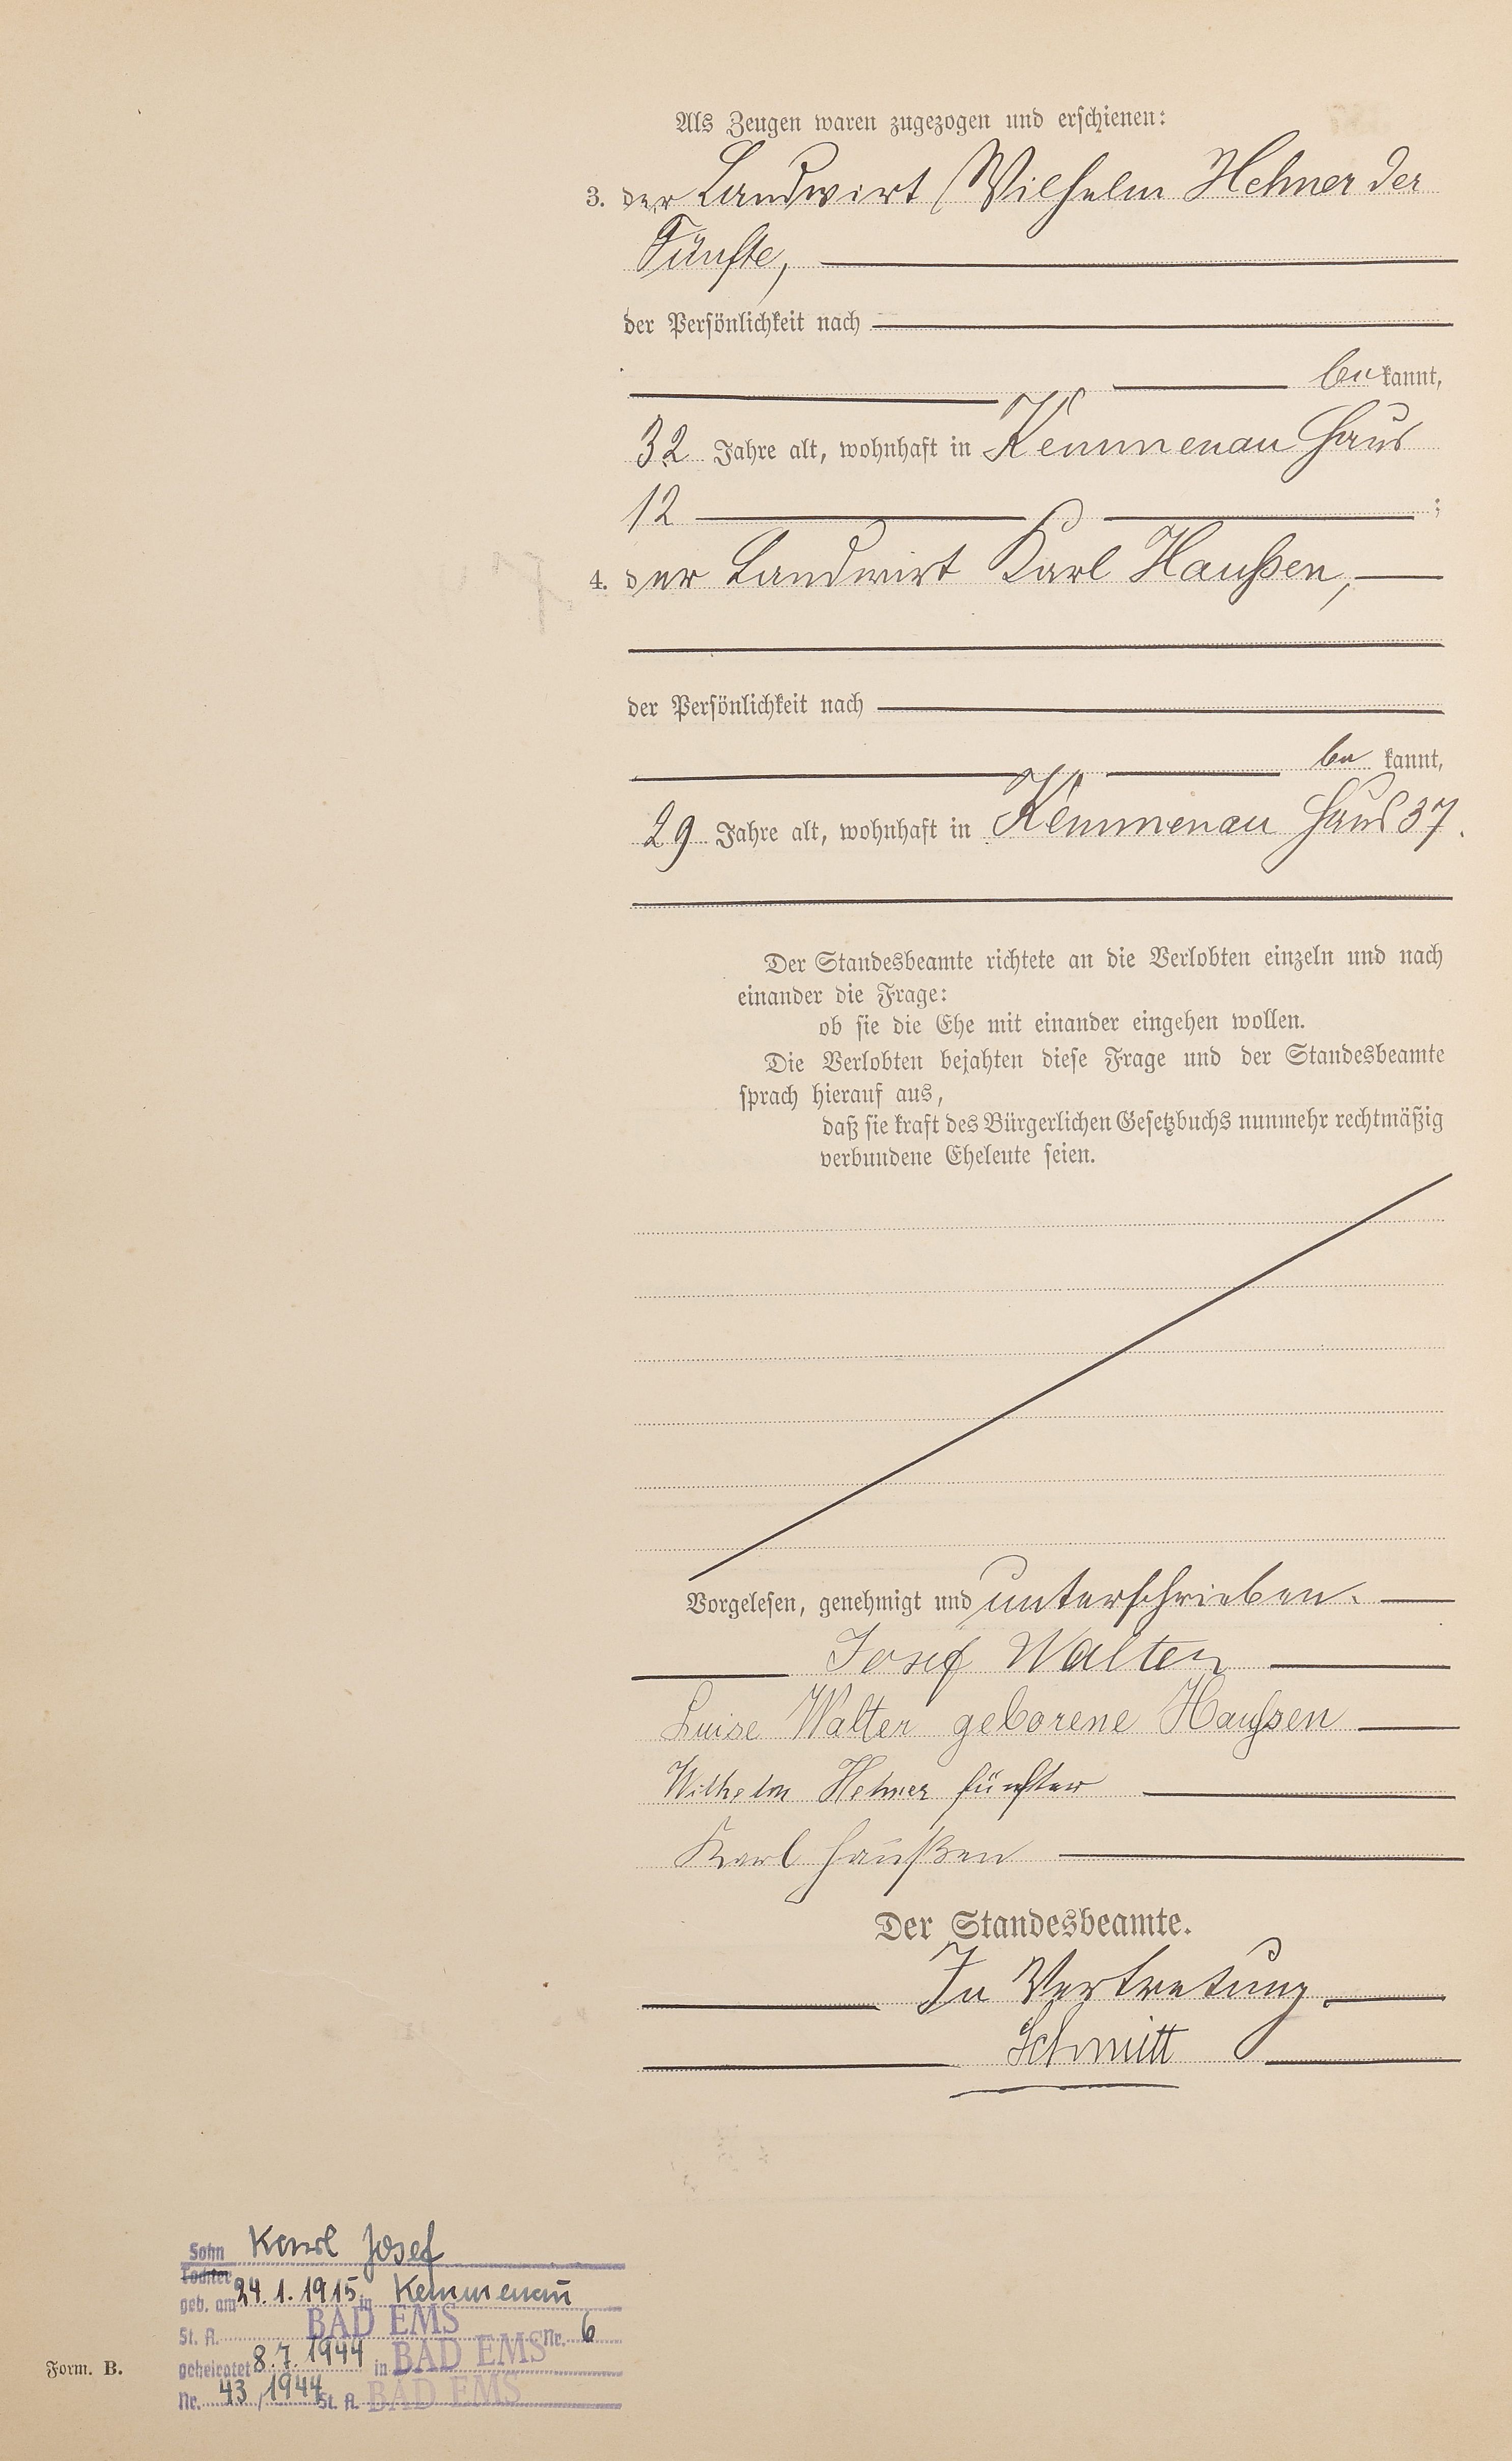 Als Zeugen waren zugezogen und erschienen:
3. der Landwirt Wilhelm Hehner der
Fünfte,
der Persönlichkeit nach
be kannt,
32 Jahre alt, wohnhaft in Kemmenau Haus
12 ;
4. der Landwirt Karl Haußen,
der Persönlichkeit nach
be kannt,
29 Jahre alt, wohnhaft in Kemmenau Haus 37.
Der Standesbeamte richtete an die Verlobten einzeln und nach
einander die Frage:
ob sie die Ehe mit einander eingehen wollen.
Die Verlobten bejahten diese Frage und der Standesbeamte
sprach hierauf aus,
daß sie kraft des Bürgerlichen Gesetzbuchs nunmehr rechtmäßig
verbundene Eheleute seien.
Vorgelesen, genehmigt und unterschrieben.
Josef Walter
Luise Walter geborene Haußen
Wilhelm Hehner fünfter
Karl Haußen
Der Standesbeamte.
In Vertretung
Schmitt
Sohn Karl Josef
Tochter
geb. am 24.1.1915 in Kemmenau
St. A. BAD EMS Nr. 6
geheiratet 8.7.1944 in BAD EMS
Nr. 43/1944 St. A. BAD EMS
Form. B.